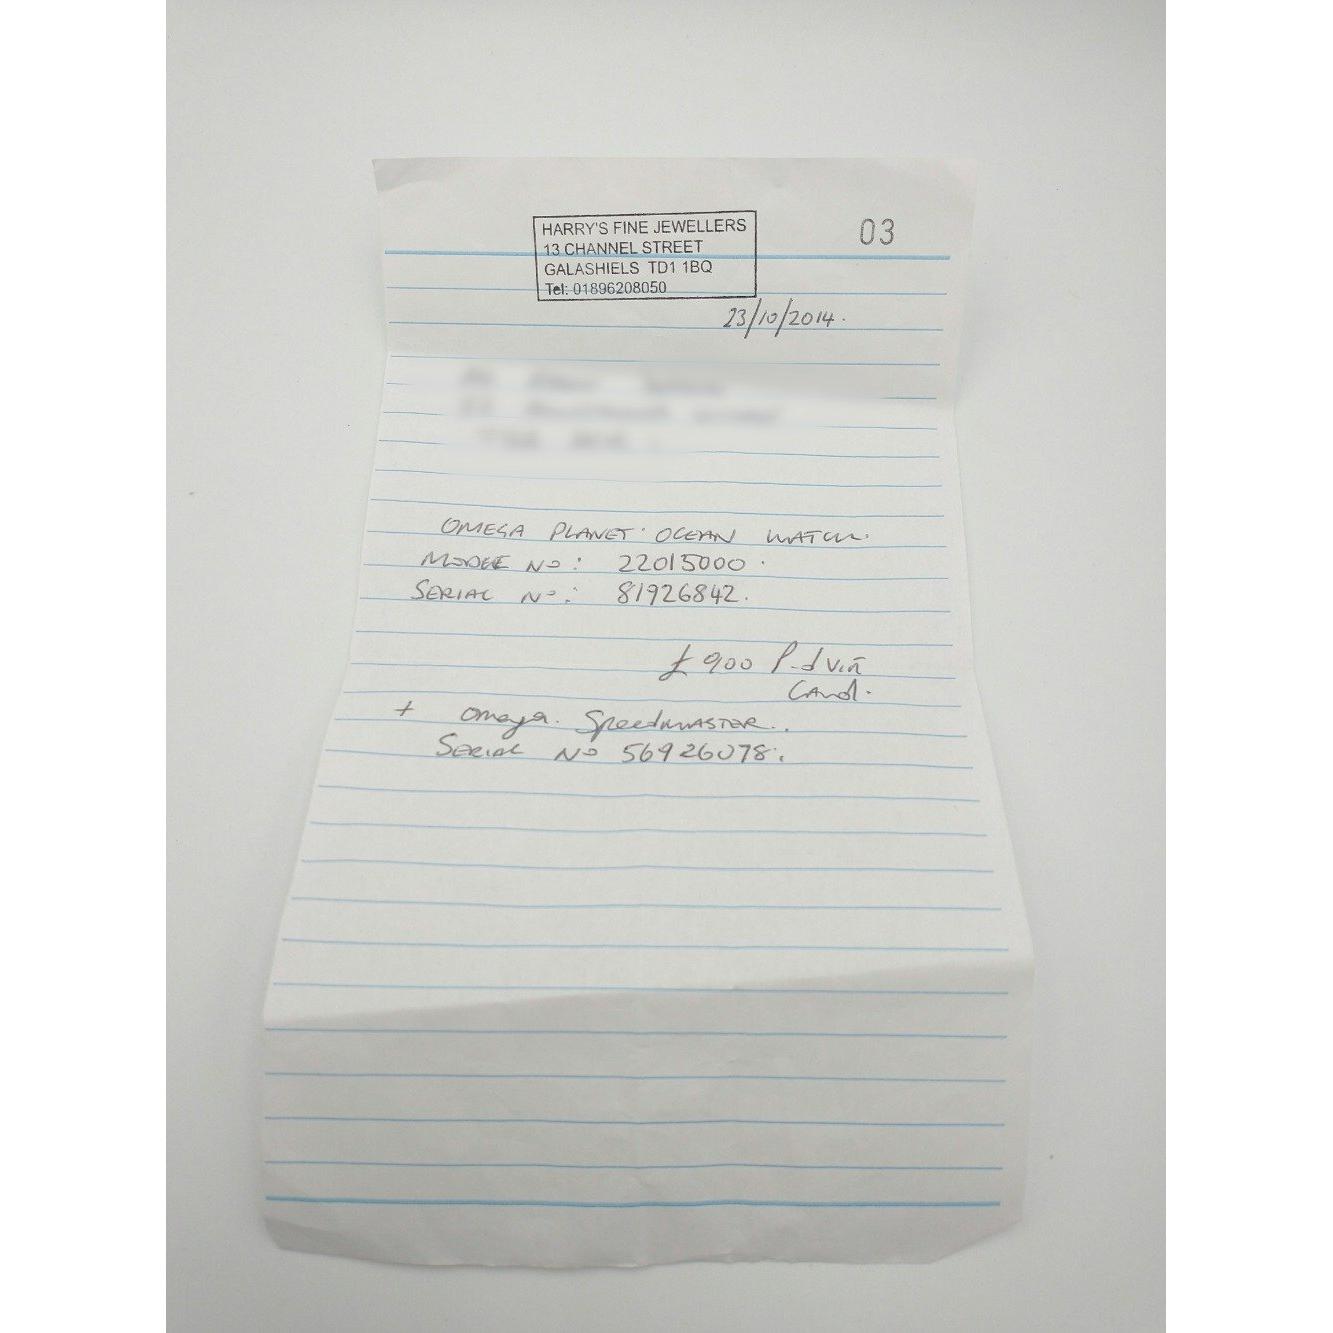 HARRY'S FINE JEWELLERS
13 CHANNEL STREET
GALASHIELS TD1 1BQ
Tel: 01896208050
03
23/10/2014.
OMEGA PLANET OCEAN WATCH.
MODEL NO: 22015000.
SERIAL NO: 81926842.
£900 P-d via
Card.
+ Omega. Speedmaster.
SERIAL NO 56926078.